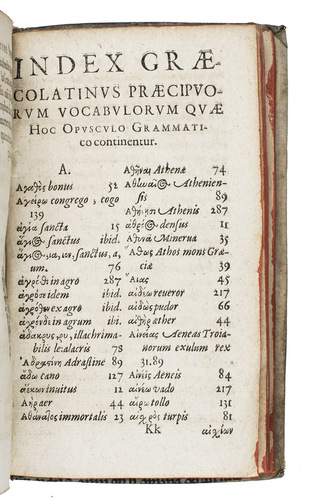 INDEX GRÆ-
COLATINVS PRÆCIPVO-
RVM VOCABVLORVM QVÆ
HOC OPVSCVLO GRAMMATI-
co continentur.
A.
Αγαθὸς bonus 52
Αγείρω congrego, cogo
139
ἁγία sancta 15
ἅγιος sanctus ibid.
ἅγιος, ια, ιον, sanctus, a,
um. 76
ἀγρόθι in agro 287
idem ibid.
ex agro ibid.
in agrum ibi.
illachrima-
bilis le alacris 78
Adrastine 89
ἄδω cano 127
ἀέκων inuitus 12
Αὴρ aer 44
Αθάνατος immortalis 23
Αθῆναι Athenæ 74
Αθηναῖος Athenien-
sis 89
Athenis 287
densus 11
Αθηνᾶ Minerua 35
Αθως Athos mons Græ-
ciæ 39
Αἴας 45
reueror 217
αἰδὼς pudor 66
αἰθὴρ æther 44
Αἰνείας Aeneas Troia-
norum exulum rex
31.89
Aeneis 84
vado 217
αἴρω tollo 131
αἰσχρὸς turpis 81
Kk